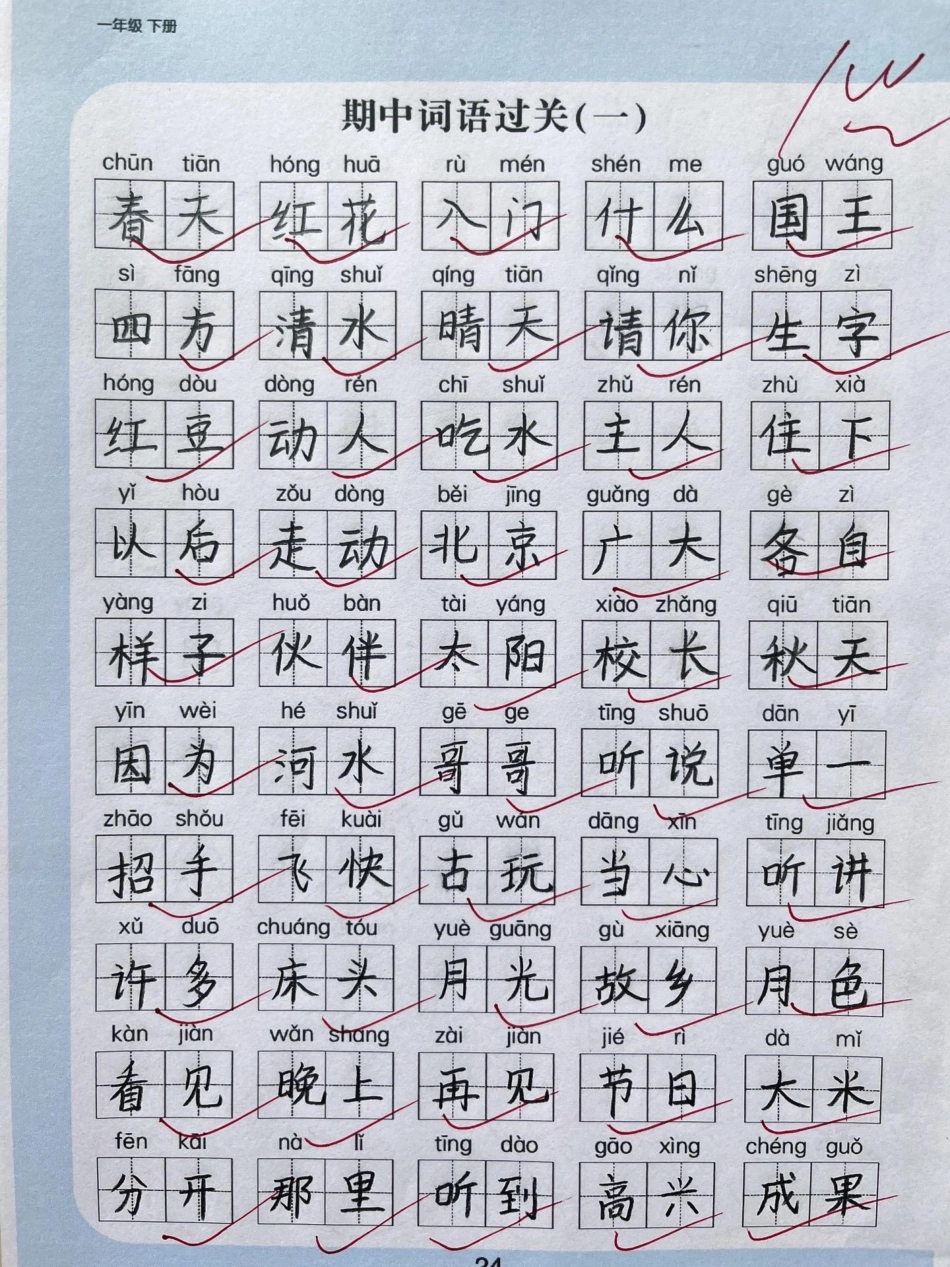 一年级 下册
期中词语过关(一)
chūn tiān hóng huā rù mén shén me guó wáng
春天 红花 入门 什么 国王
sì fāng qīng shuǐ qíng tiān qǐng nǐ shēng zì
四方 清水 晴天 请你 生字
hóng dòu dòng rén chī shuǐ zhǔ rén zhù xià
红豆 动人 吃水 主人 住下
yǐ hòu zǒu dòng běi jīng guǎng dà gè zì
以后 走动 北京 广大 各自
yàng zi huǒ bàn tài yáng xiào zhǎng qiū tiān
样子 伙伴 太阳 校长 秋天
yīn wèi hé shuǐ gē ge tīng shuō dān yī
因为 河水 哥哥 听说 单一
zhāo shǒu fēi kuài gǔ wán dāng xīn tīng jiǎng
招手 飞快 古玩 当心 听讲
xǔ duō chuáng tóu yuè guāng gù xiāng yuè sè
许多 床头 月光 故乡 月色
kàn jiàn wǎn shang zài jiàn jié rì dà mǐ
看见 晚上 再见 节日 大米
fēn kāi nà lǐ tīng dào gāo xìng chéng guǒ
分开 那里 听到 高兴 成果
24